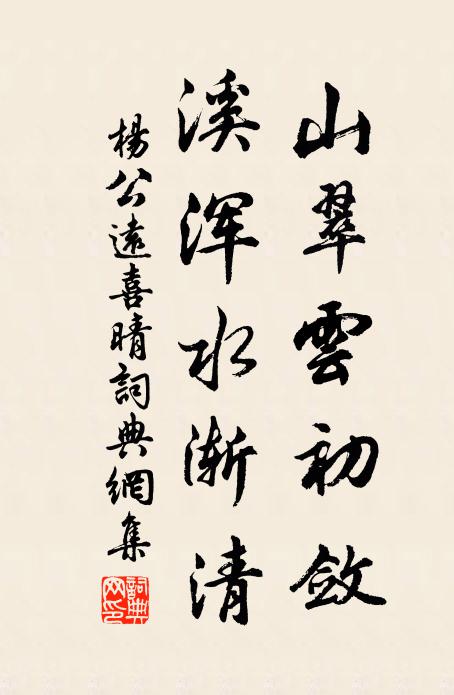 山翠雲初斂
溪浑水渐清
楊公遠喜晴詞典網集
詞典网印